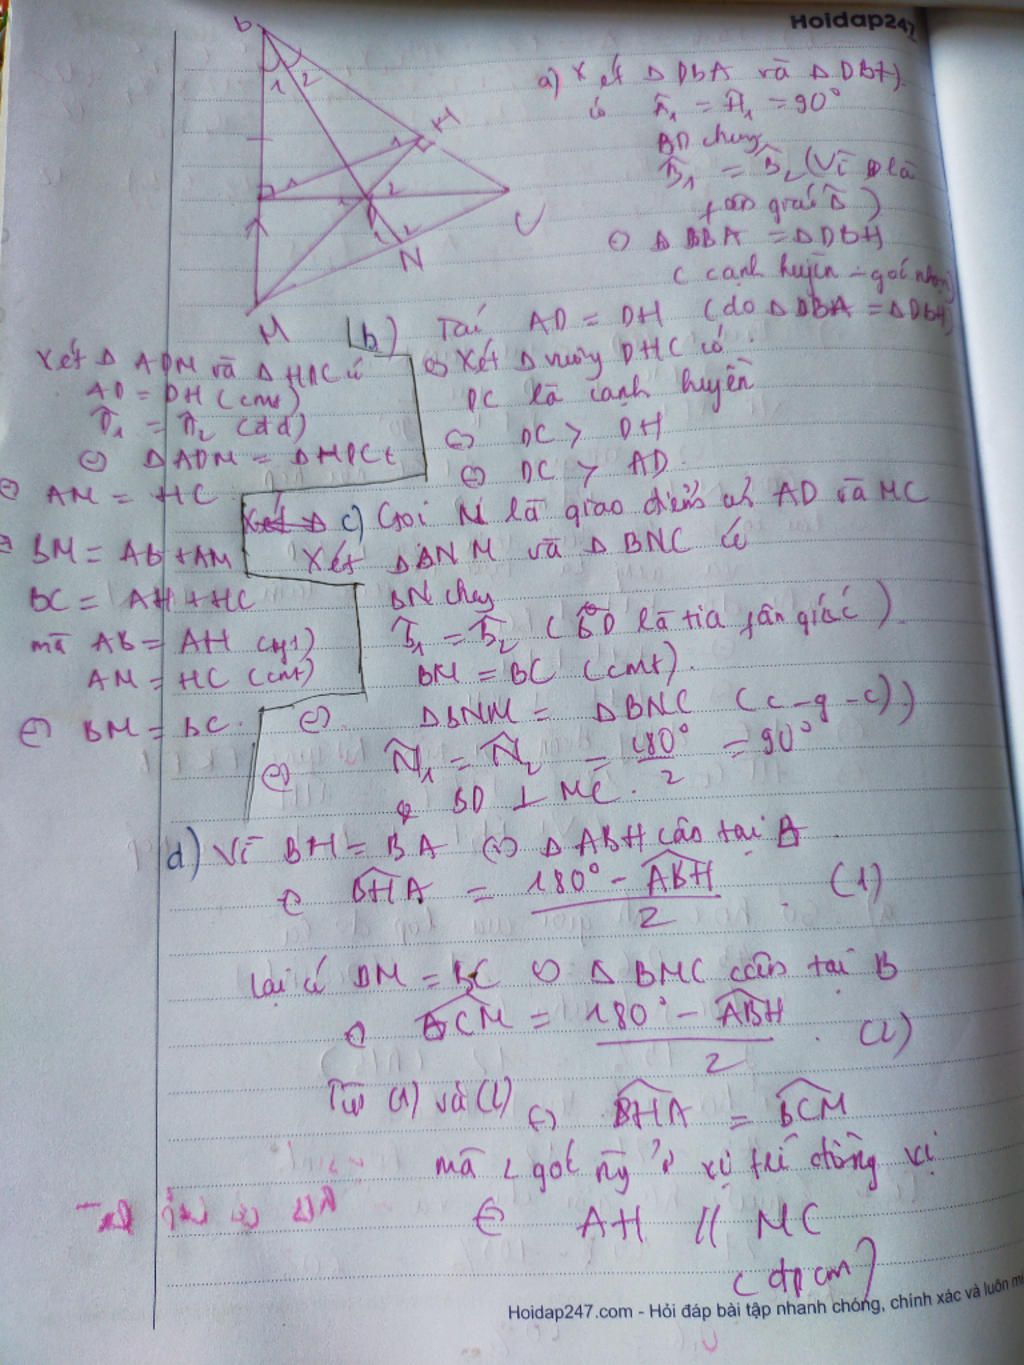 Hoidap247
B
1 2
H
1
A
1
2
D
1 2
C
N
M
a) Xét Δ DBA và Δ DBH
có Â₁ = Ĥ₁ = 90°
BD chung
B̂₁ = B̂₂ (Vì D là
fân giác B̂)
⇔ Δ DBA = Δ DBH
(cạnh huyền - góc nhọn)
(b) Ta có AD = DH (do Δ DBA = Δ DBH)
⇔ Xét Δ vuông DHC có
DC là cạnh huyền
⇔ DC > DH
⇔ DC > AD
Xét Δ ADM và Δ HDC có
AD = DH (cmt)
D̂₁ = D̂₂ (đđ)
⇔ Δ ADM = Δ HDC
⇔ AM = HC
BM = AB + AM
BC = AH + HC
mà AB = AH
AM = HC (cmt)
⇔ BM = BC.
Xét Δ c) Gọi N là giao điểm của AD và MC
Xét Δ BNM và Δ BNC có
BN chung
B̂₁ = B̂₂ (BD là tia fân giác)
BM = BC (cmt).
⇔ Δ BNM = Δ BNC (c-g-c)
⇔ N̂₁ = N̂₂ = 180°/2 = 90°
BD ⊥ MC.
d) Vì BH = BA ⇔ Δ ABH cân tại B
⇔ BHA = (180° - ABH)/2. (1)
lại có BM = BC ⇔ Δ BMC cân tại B
⇔ BCM = (180° - ABH)/2. (2)
Từ (1) và (2) ⇔ BHA = BCM
mà 2 góc này ở vị trí đồng vị
⇔ AH // MC
(đpcm)
Hoidap247.com - Hỏi đáp bài tập nhanh chóng, chính xác và luôn mi